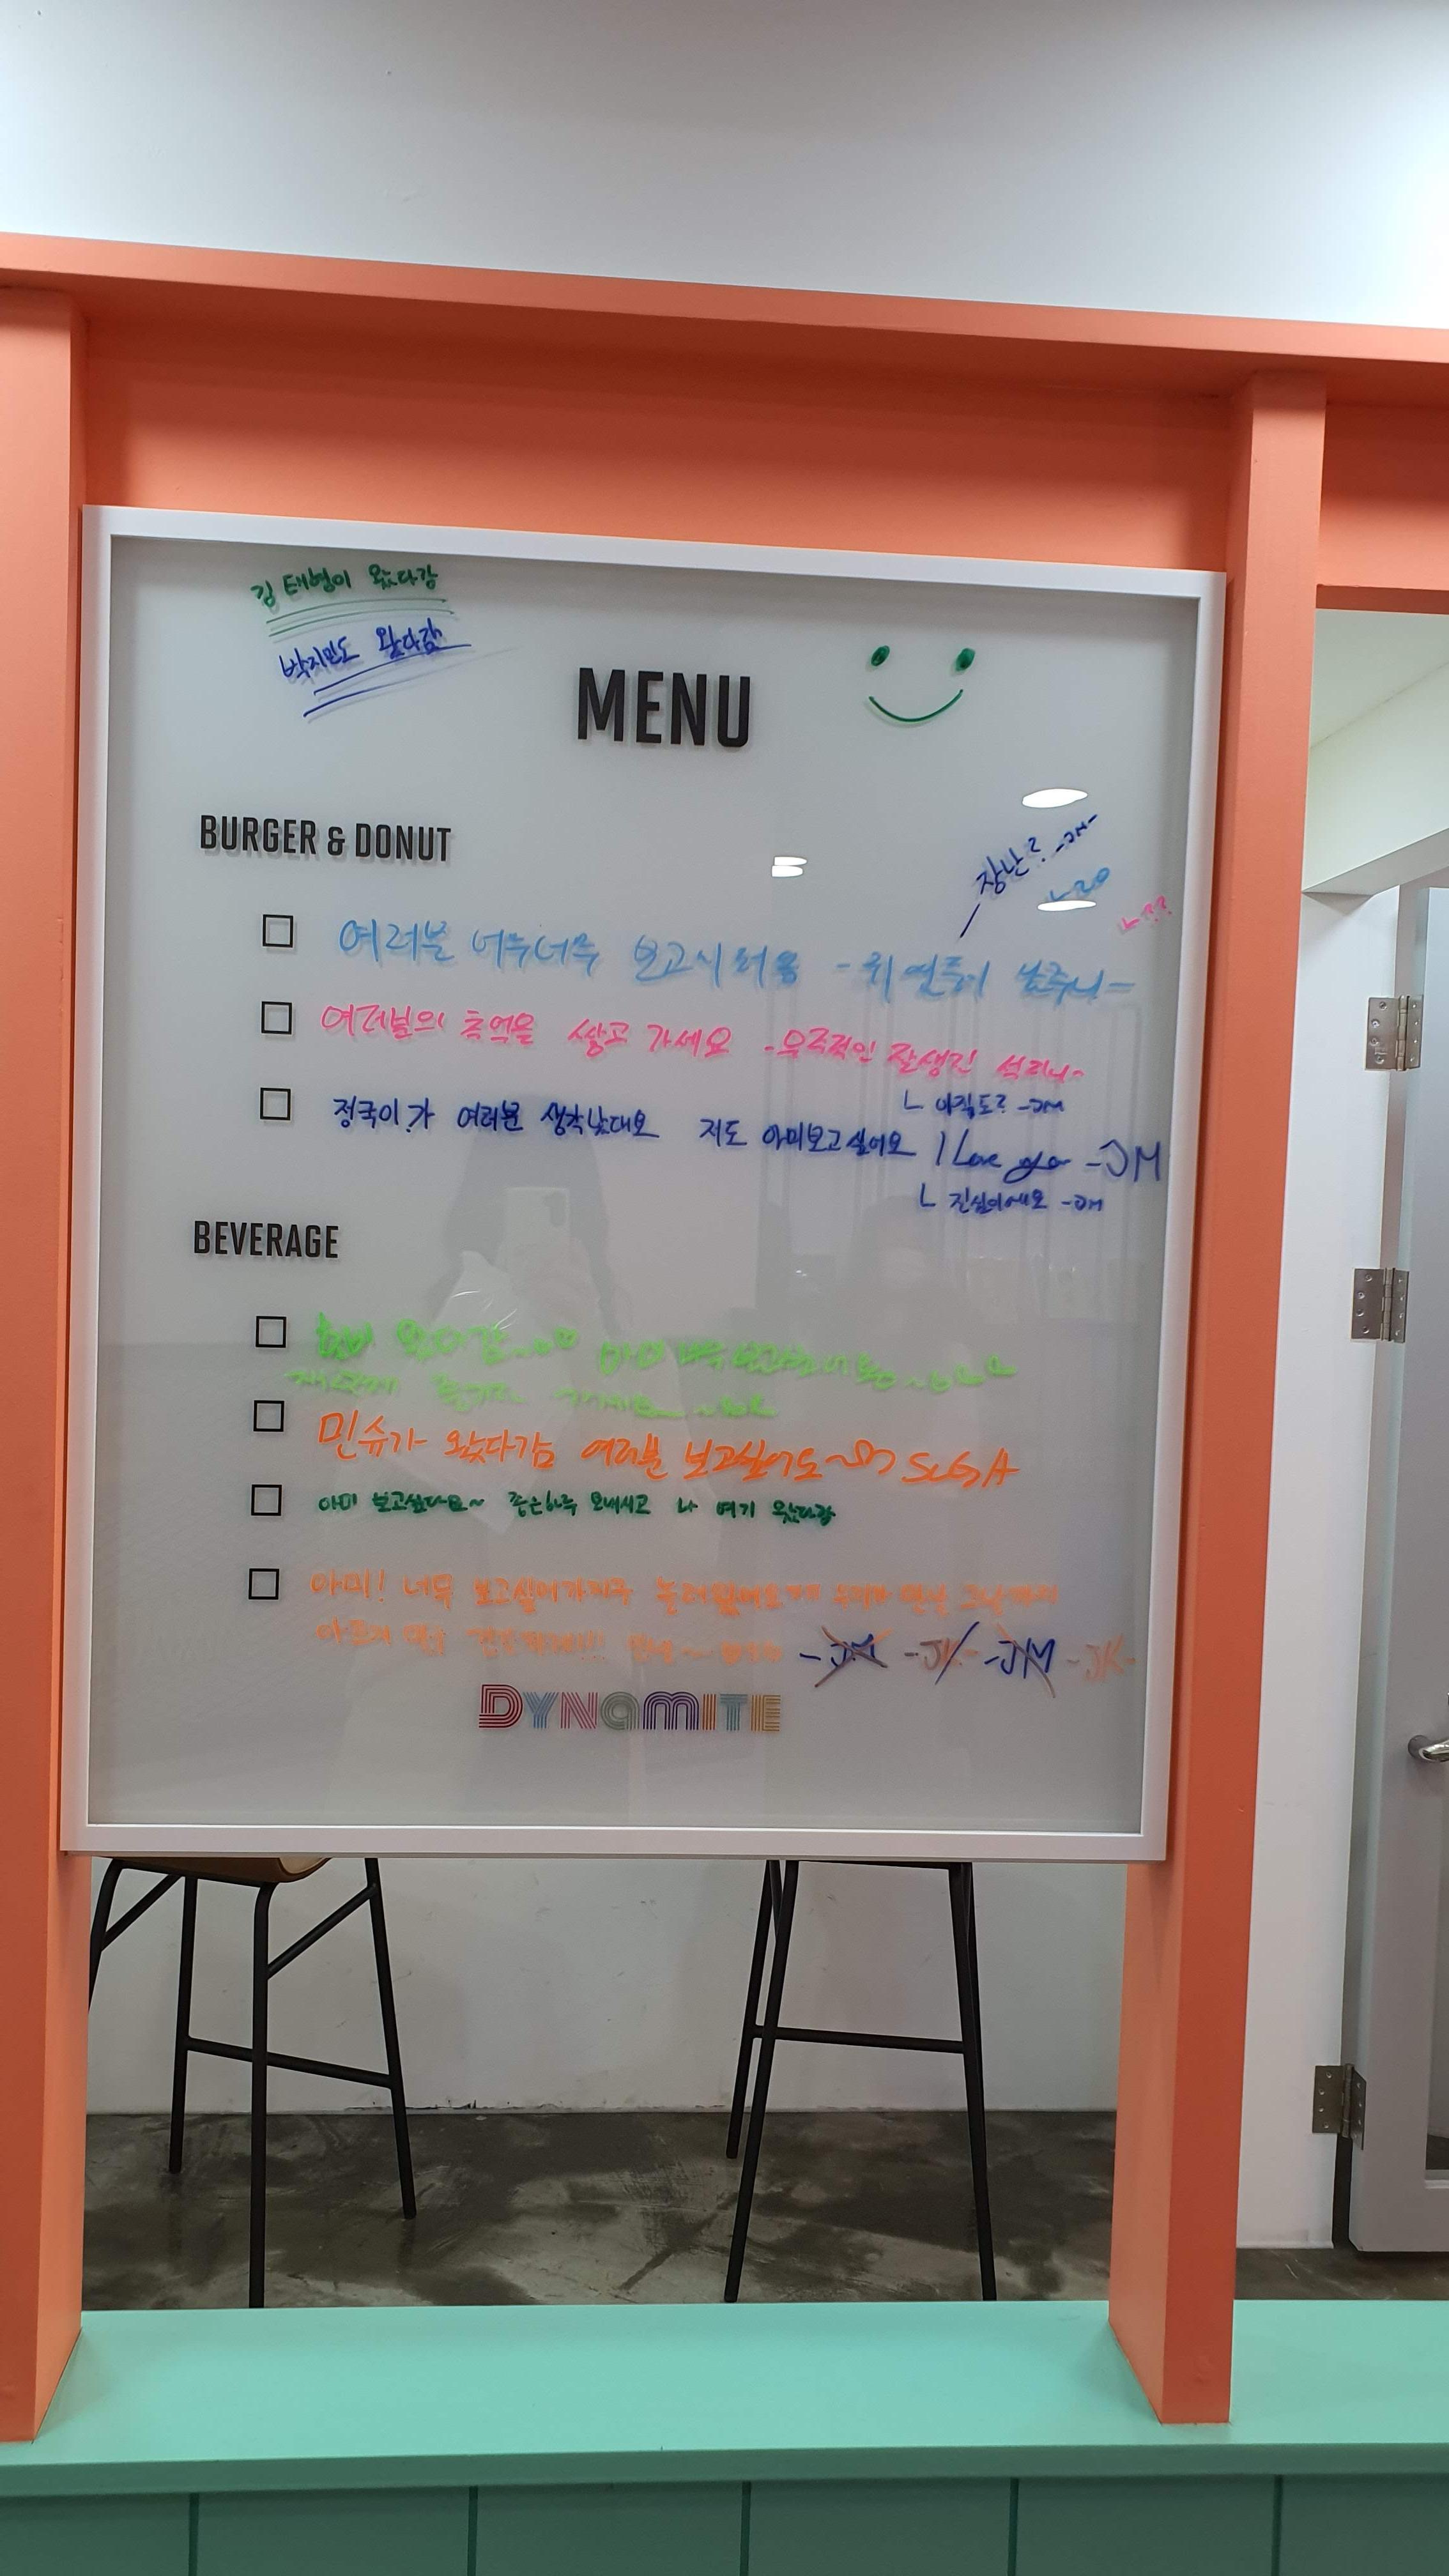 김태형이 왔다감
박지민도 왔다감
MENU
BURGER & DONUT
장난? -JM-
ㄴ??
여러분 너무너무 보고시퍼용 - 귀연둥이 남주니-
여러분의 추억을 쌓고 가세요 - 우주적인 잘생긴 석지니-
ㄴ 아직도? -JM
정국이가 여러분 생각났대요 저도 아미보고싶어요 I Love you -JM
ㄴ 진심이에요 -JM
BEVERAGE
호비 왔다감 아미 너무 보고싶
즐기고 가세요
민슈가 왔다감 여러분 보고싶어요~ SUGA
아미 보고싶다요~ 좋은하루 보내시고 나 여기 왔다감
아미! 너무 보고싶어가지구 놀러왔어요 우리가 만날 그날까지
아프지 말고
-JM -JK- -JM -JK-
DYNAMITE